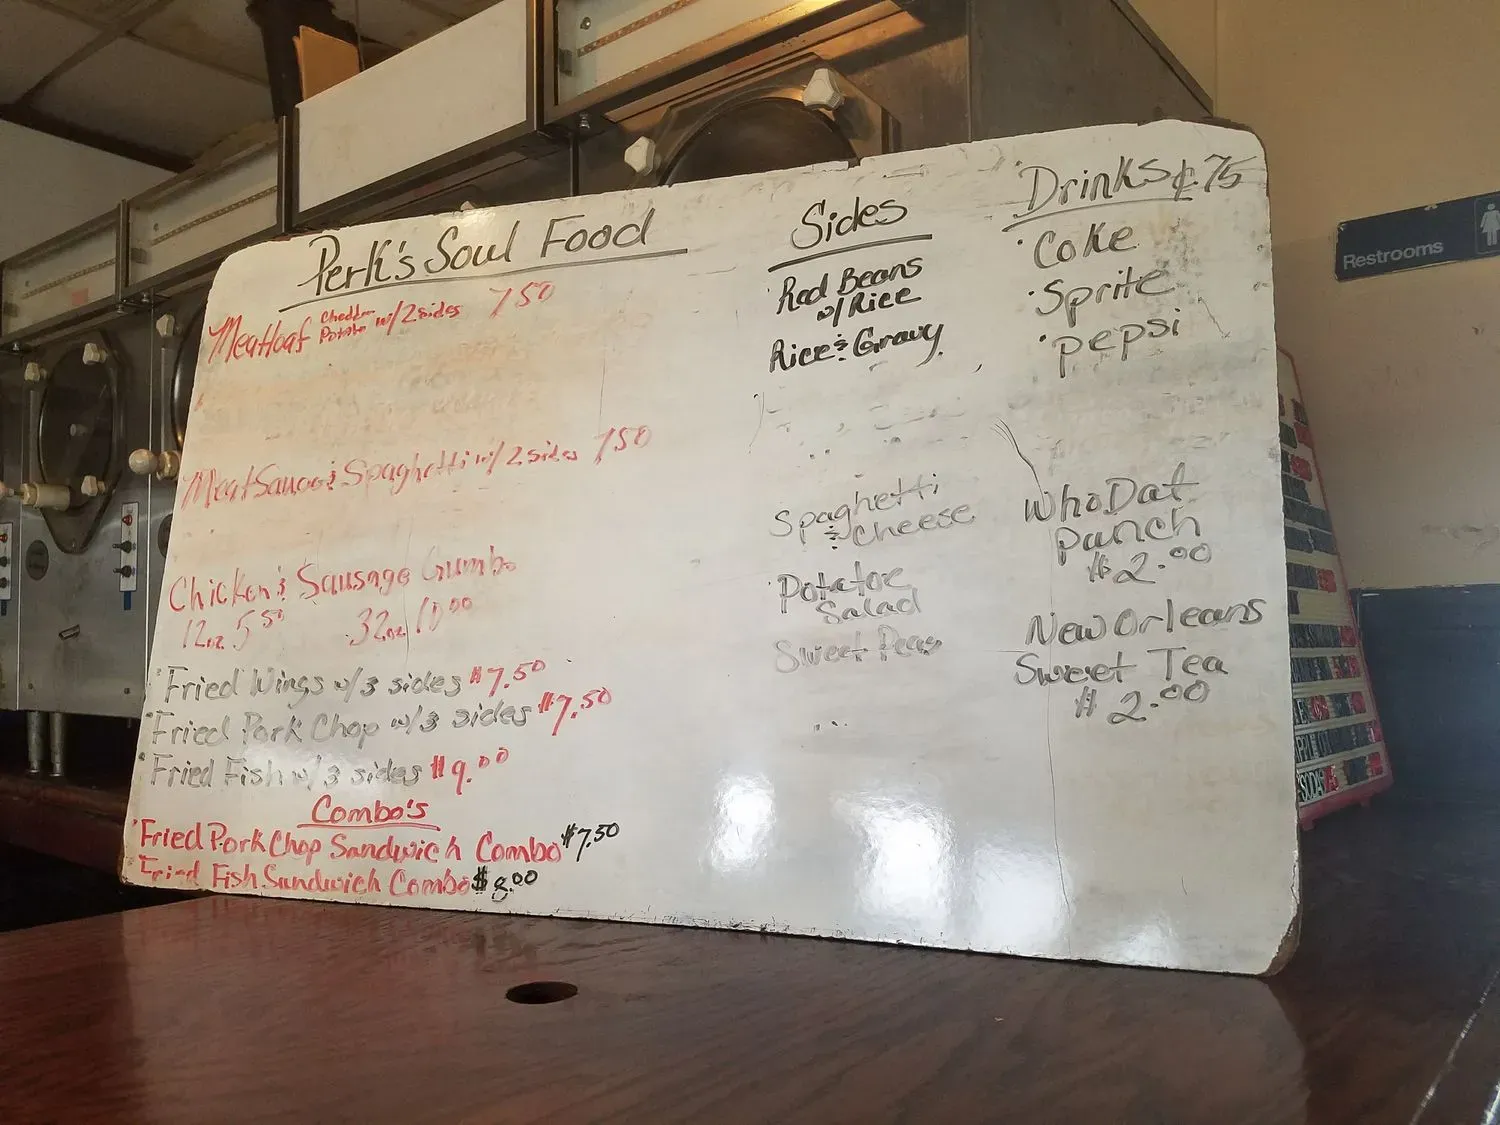 Perk's Soul Food
Meatloaf Cheddar Potato w/2 sides 750
Meat Sauce & Spaghetti w/2 sides 750
Chicken & Sausage Gumbo
12oz 5.50 32oz 10.00
Fried Wings w/3 sides $7.50
Fried Pork Chop w/3 sides $7.50
Fried Fish w/3 sides $9.00
Combo's
Fried Pork Chop Sandwich Combo $7.50
Fried Fish Sandwich Combo $8.00
Sides
Red Beans
w/Rice
Rice & Gravy
Spaghetti
& Cheese
Potatoe
Salad
Sweet Peas
Drinks ¢75
Coke
Sprite
Pepsi
Who Dat
Punch
$2.00
New Orleans
Sweet Tea
$2.00
Restrooms